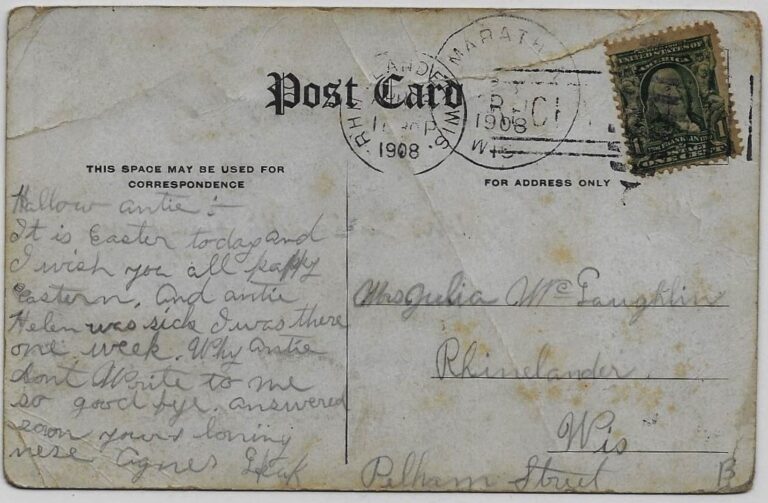 Post Card
RHINELANDER WIS.
1908
MARATH
1908
WIS
UNITED STATES OF
AMERICA
FRANKLIN
1 1
ONE CENT
THIS SPACE MAY BE USED FOR
CORRESPONDENCE
FOR ADDRESS ONLY
Hallow antie :-
It is Easter today and
I wish you all happy
eastern, And antie
Helen was sick I was there
one week. Why Antie
dont Write to me
so good bye. answered
soon yours loving
nese Agnes
Mrs Julia Mc Laughlin
Rhinelander,
Wis
Pelham Street
B